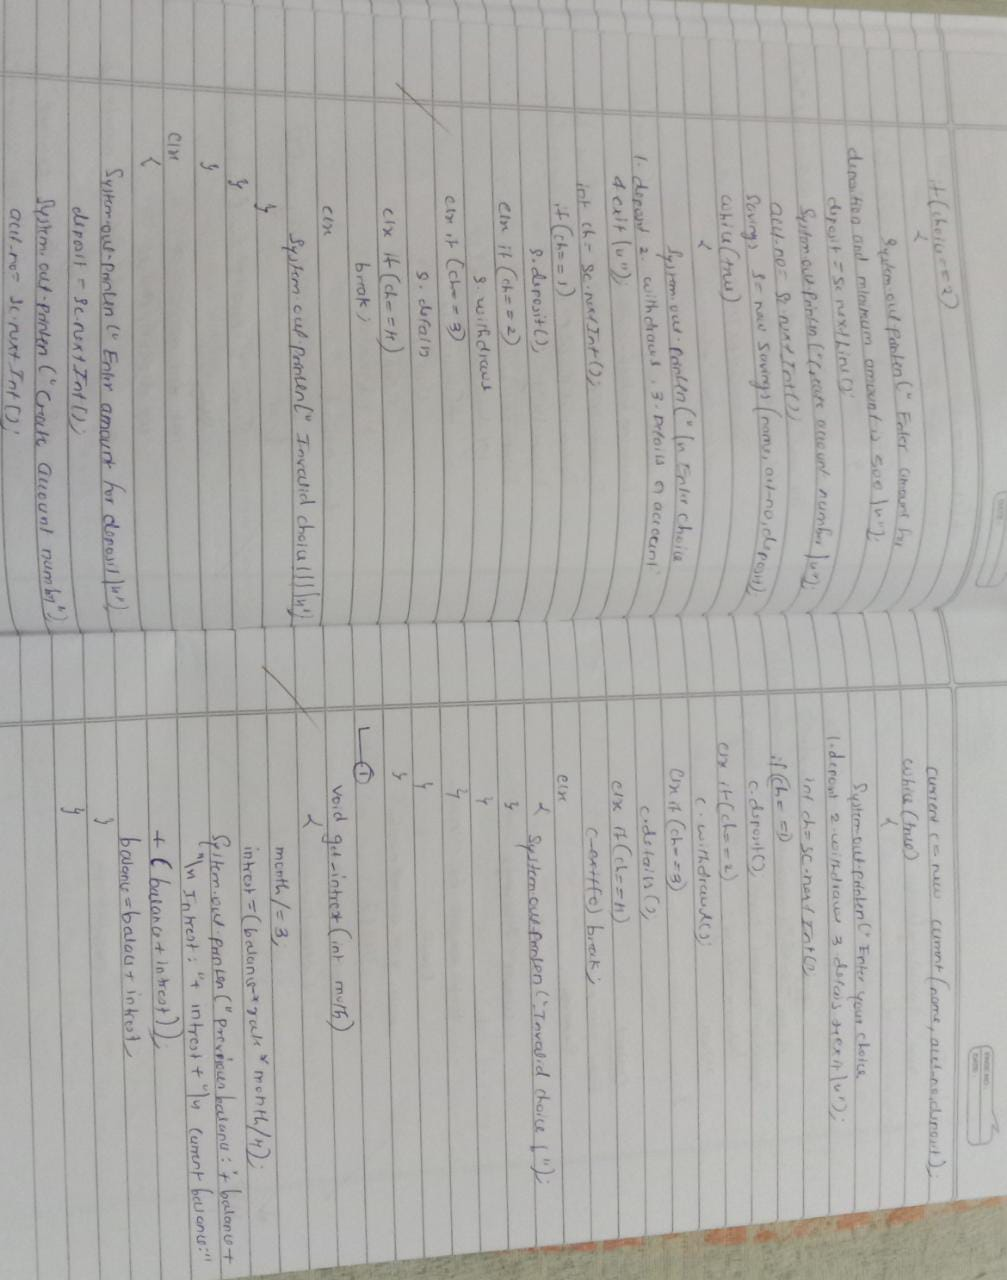 if(choice==2)
{
System.out.println("Enter amount for
deposition and minimum amount is 500 \n");
deposit = sc.nextLine();
System.out.println("Create account number \n");
acct-no = sc.nextInt();
Savings s = new Savings (name, act-no, deposit);
while(true)
{
System.out.println("\n Enter choice
1. deposit 2. withdraws, 3. Details of account
4 exit \n");
int ch = sc.nextInt();
if(ch==1)
s.deposit();
else if (ch==2)
s.withdraws
else if (ch==3)
s.details
else if (ch==4)
break;
else
System.out.println("Invalid choice !!! \n")
}
}
}
else
{
System.out.println("Enter amount for deposit \n");
deposit = sc.nextInt();
System.out.println("Create account number")
acct-no = sc.nextInt();
current c = new current (name, acct-no, deposit);
while(true)
{
System.out.println("Enter your choice
1. deposit 2. withdraw 3 details 4 exit \n");
int ch = sc.nextInt();
if(ch==1)
c.deposit();
else if(ch==2)
c.withdraws();
else if(ch==3)
c.details();
else if(ch==4)
break;
else
{ System.out.println("Invalid choice !");
}
}
}
}
}
1
void get-intrest (int month)
{
month /= 3;
intrest = (balance * rate * month/4);
System.out.println("previous balance: "+ balance +
"\n Intrest: "+ intrest + "\n current balance:"
+ (balance + intrest));
balance = balance + intrest;
}
}